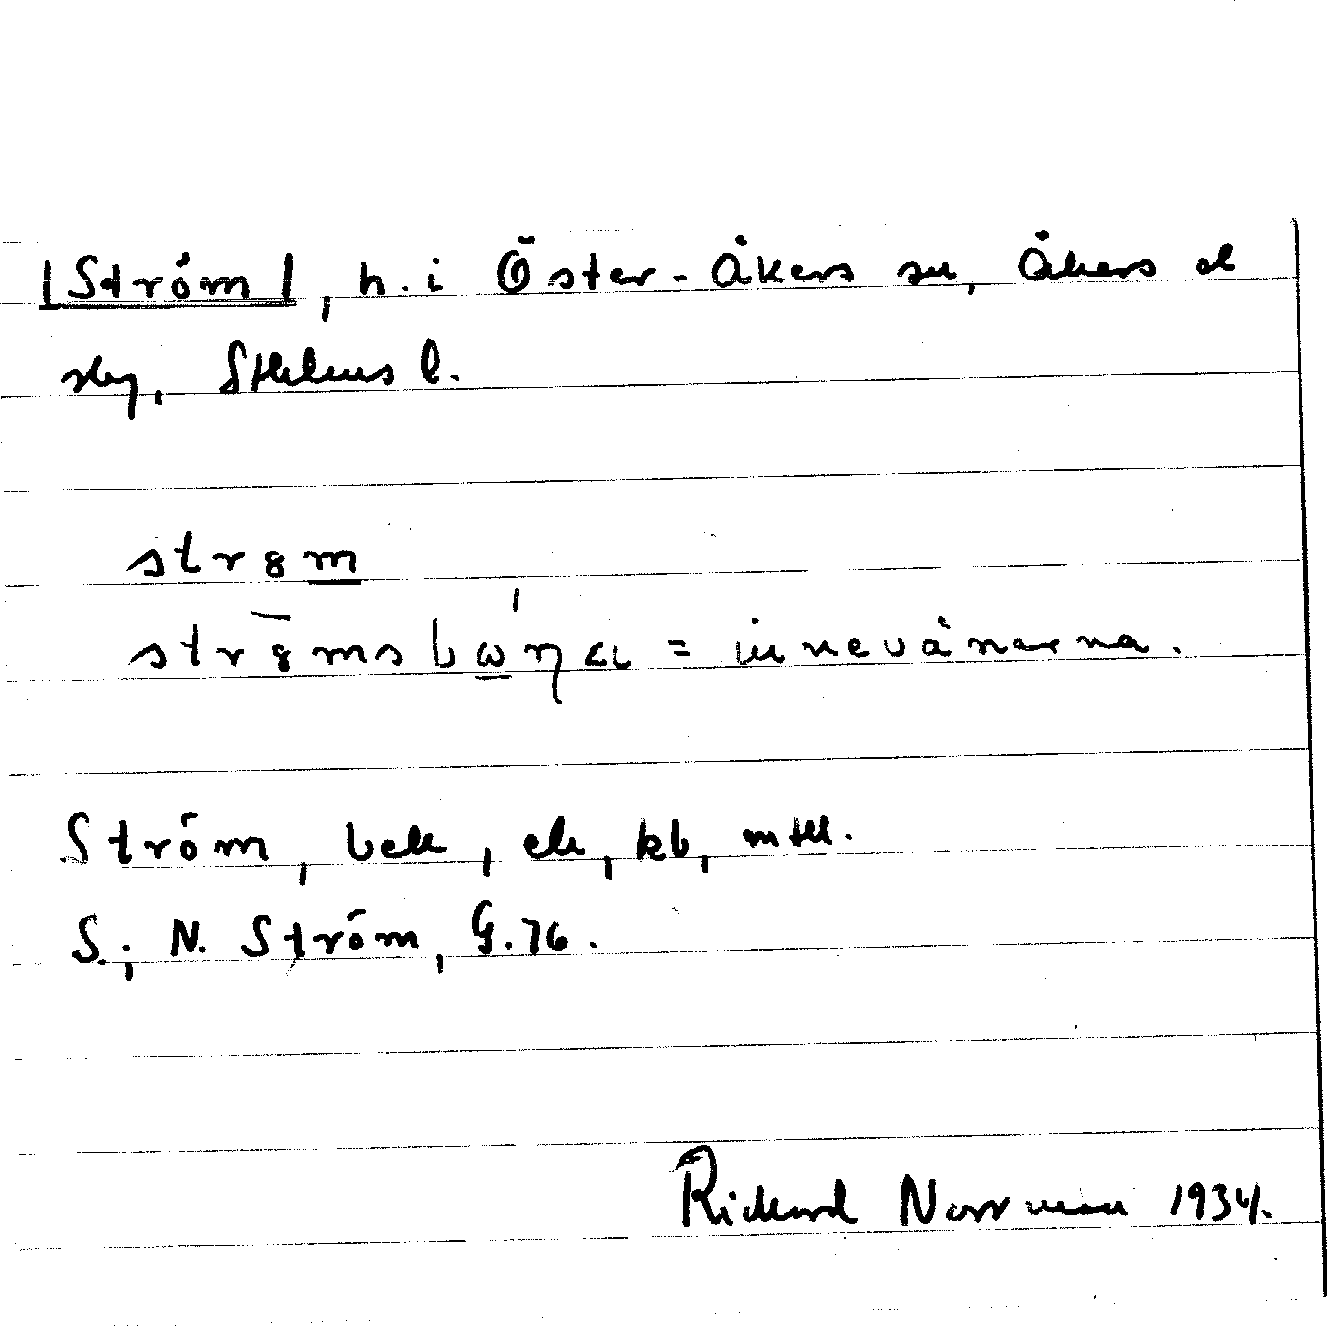 |Ström|, h. i Öster-Åkers sn, Åkers
skg, Sthlms l.
strȣm
= innevånarna.
Ström, bek, ek, kb, mtll.
S.; N. Ström, G. 76.
Rickard Norrman 1934.